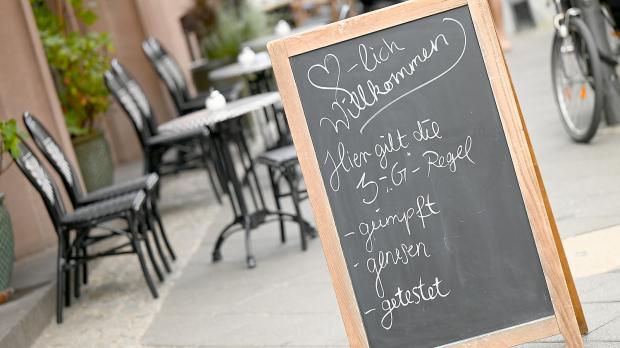 ♡-lich
Willkommen
Hier gilt die
3-"G"-Regel
- geimpft
- genesen
- getestet